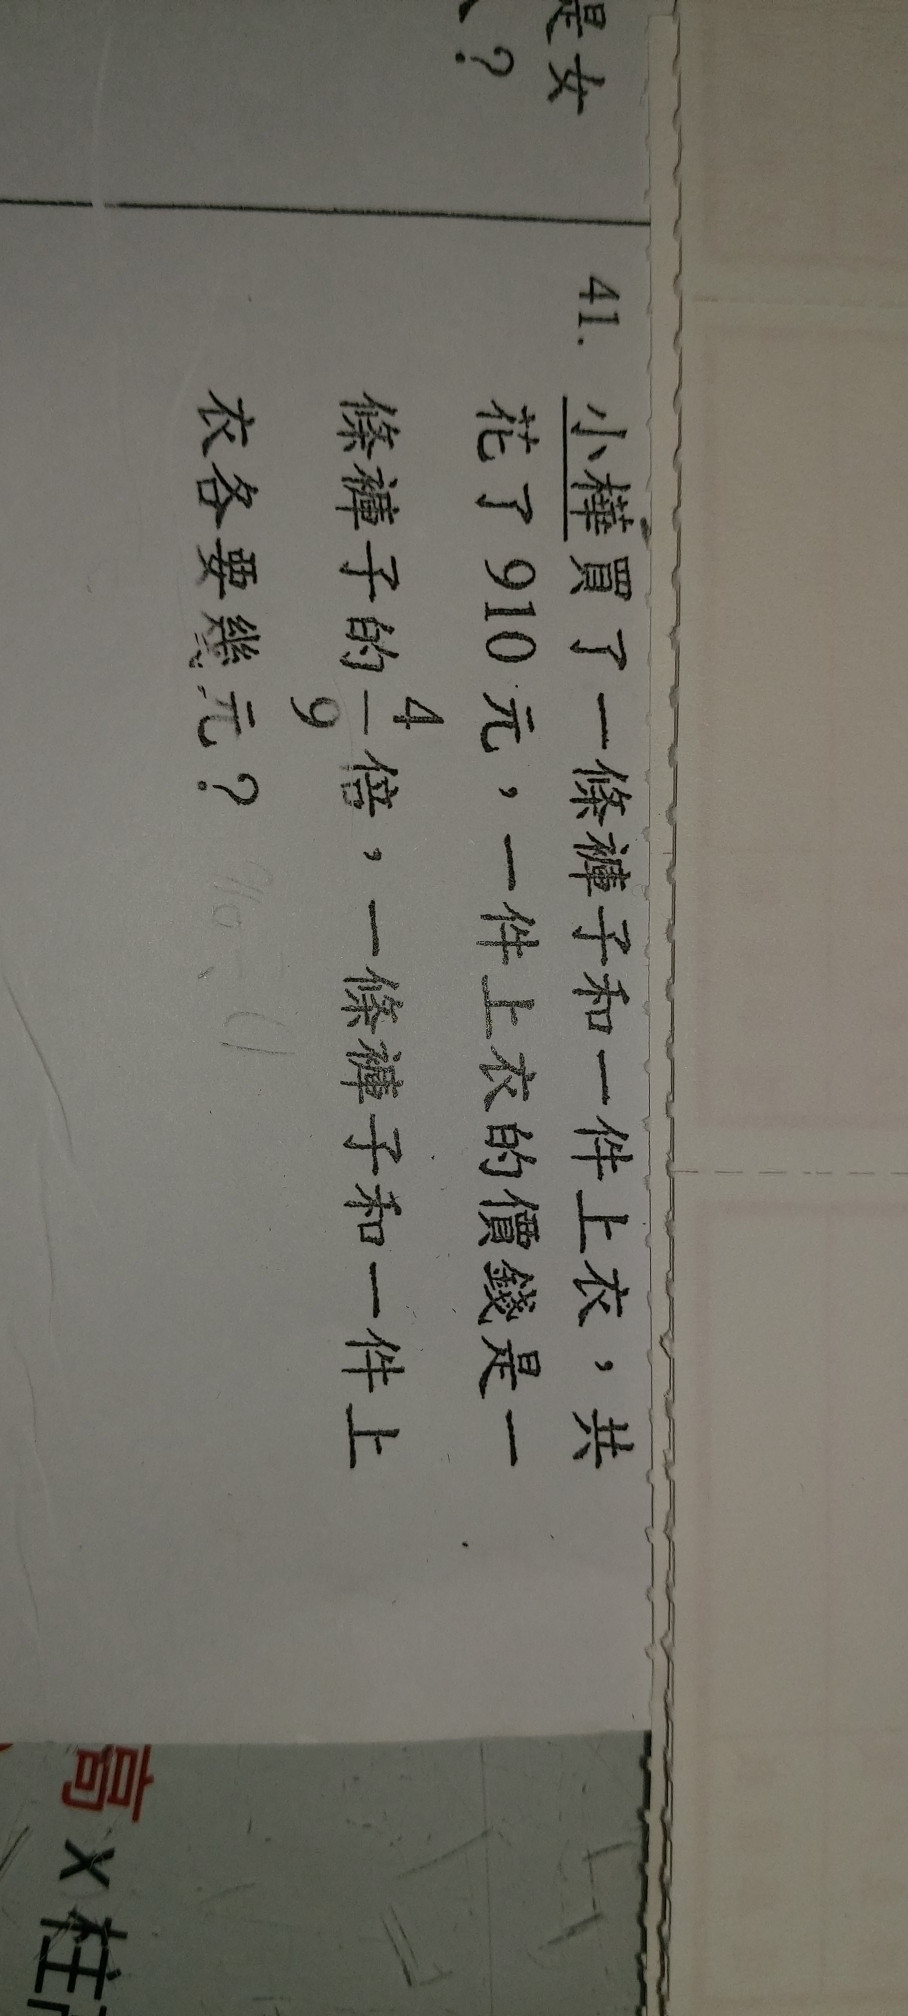 是女
？
41. 小樺買了一條褲子和一件上衣，共
花了910元，一件上衣的價錢是一
條褲子的4/9倍，一條褲子和一件上
衣各要幾元？
高×柱